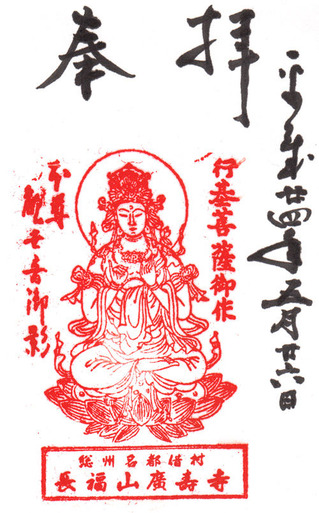 奉拝
平成廿四年五月廿六日
行基菩薩御作
本尊
観世音御影
総州名都借村
長福山廣寿寺